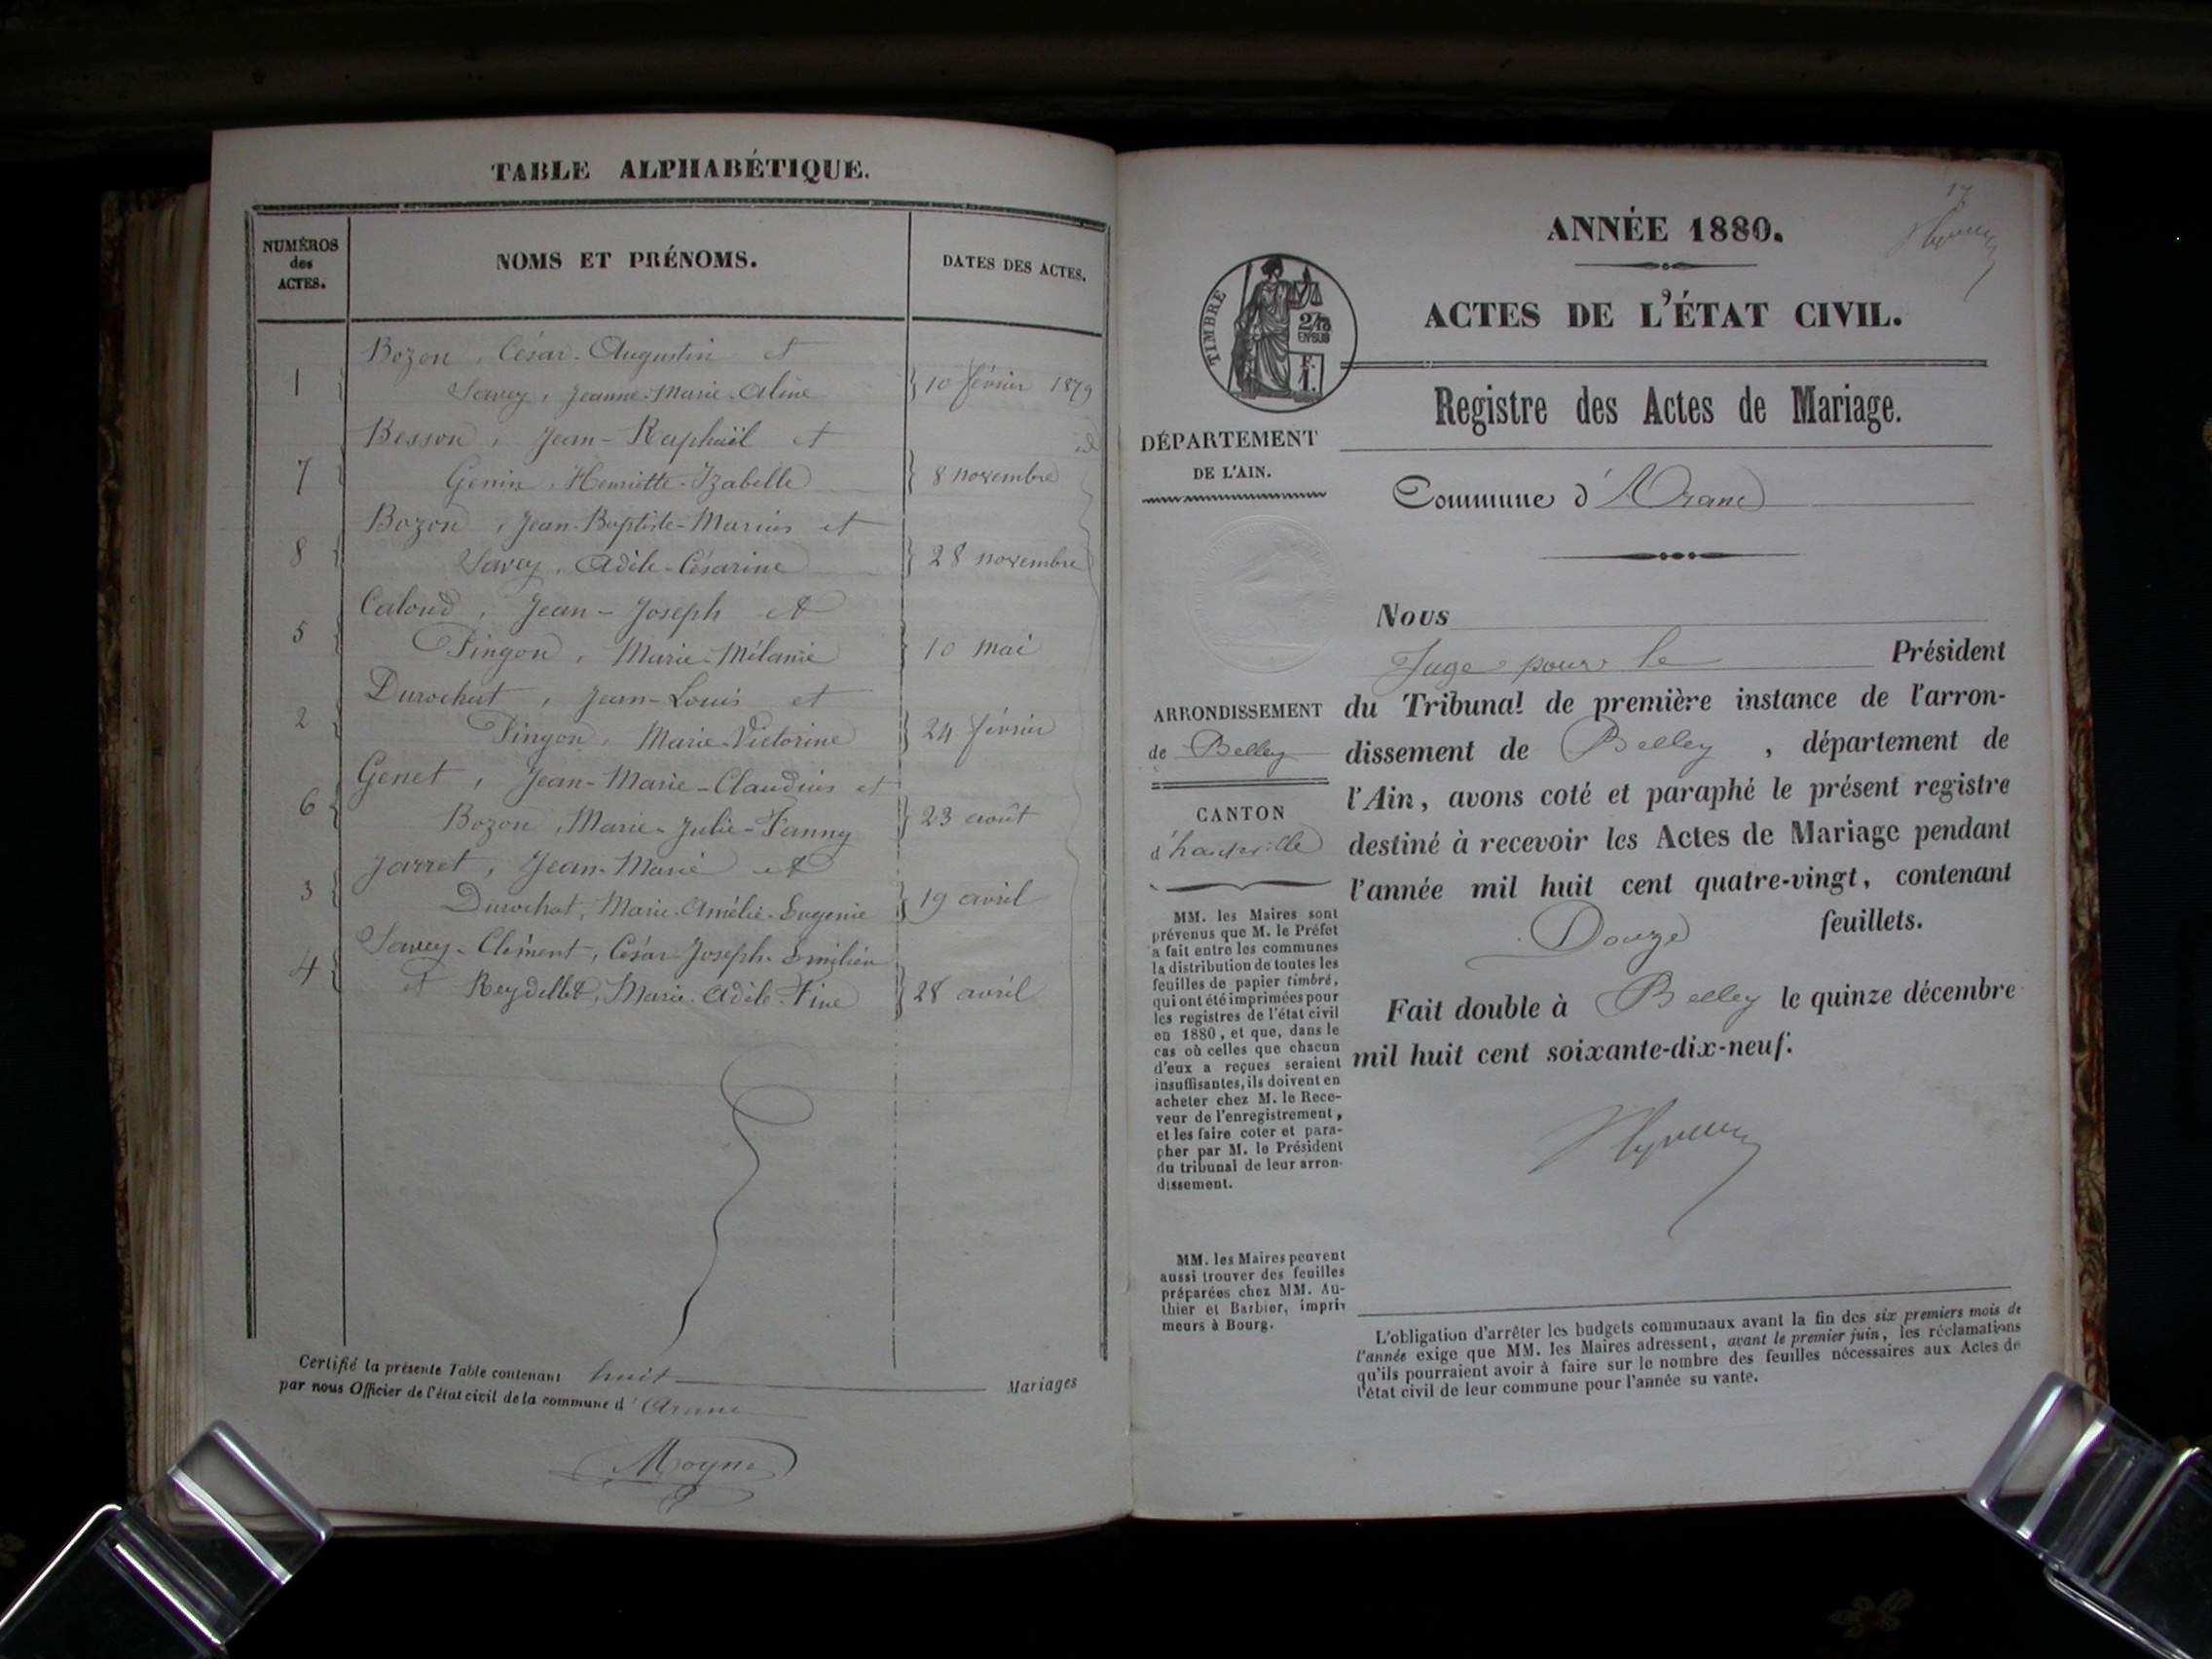 TABLE ALPHABÉTIQUE.
NUMÉROS des ACTES.
NOMS ET PRÉNOMS.
DATES DES ACTES.
Bozon, César-Augustin et
1 Savey, Jeanne-Marie-Aline 10 février 1879
Besson, Jean-Raphaël et id
7 Genin, Henriette-Izabelle 8 novembre
Bozon, Jean-Baptiste-Marius et
8 Savey, Adèle-Césarine 28 novembre
Caloud, Jean-Joseph et
5 Pingon, Marie-Mélanie 10 mai
Durochat, Jean-Louis et
2 Pingon, Marie-Victorine 24 février
Genet, Jean-Marie-Claudius et
6 Bozon, Marie-Julie-Fanny 23 août
Jarret, Jean-Marie et
3 Durochat, Marie-Amélie-Eugenie 19 avril
Savey-Clément, César-Joseph-Emilien
4 et Reydellet, Marie-Adèle-Fine 28 avril
Certifié la présente Table contenant huit Mariages
par nous Officier de l'état civil de la commune d'Arane
Moyne
17
ANNÉE 1880.
TIMBRE
2/10
EN SUS
F.
1.
ACTES DE L'ÉTAT CIVIL.
Registre des Actes de Mariage.
DÉPARTEMENT
DE L'AIN.
Commune d'Arane
ARRONDISSEMENT
de Belley
CANTON
d'hauteville
MM. les Maires sont
prévenus que M. le Préfet
a fait entre les communes
la distribution de toutes les
feuilles de papier timbré,
qui ont été imprimées pour
les registres de l'état civil
en 1880, et que, dans le
cas où celles que chacun
d'eux a reçues seraient
insuffisantes, ils doivent en
acheter chez M. le Rece-
veur de l'enregistrement,
et les faire coter et para-
pher par M. le Président
du tribunal de leur arron-
dissement.
MM. les Maires peuvent
aussi trouver des feuilles
préparées chez MM. Au-
thier et Barbier, impri-
meurs à Bourg.
Nous
Juge pour le Président
du Tribunal de première instance de l'arron-
dissement de Belley, département de
l'Ain, avons coté et paraphé le présent registre
destiné à recevoir les Actes de Mariage pendant
l'année mil huit cent quatre-vingt, contenant
Douze feuillets.
Fait double à Belley le quinze décembre
mil huit cent soixante-dix-neuf.
L'obligation d'arrêter les budgets communaux avant la fin des six premiers mois de
l'année exige que MM. les Maires adressent, avant le premier juin, les réclamations
qu'ils pourraient avoir à faire sur le nombre des feuilles nécessaires aux Actes de
l'état civil de leur commune pour l'année su vante.